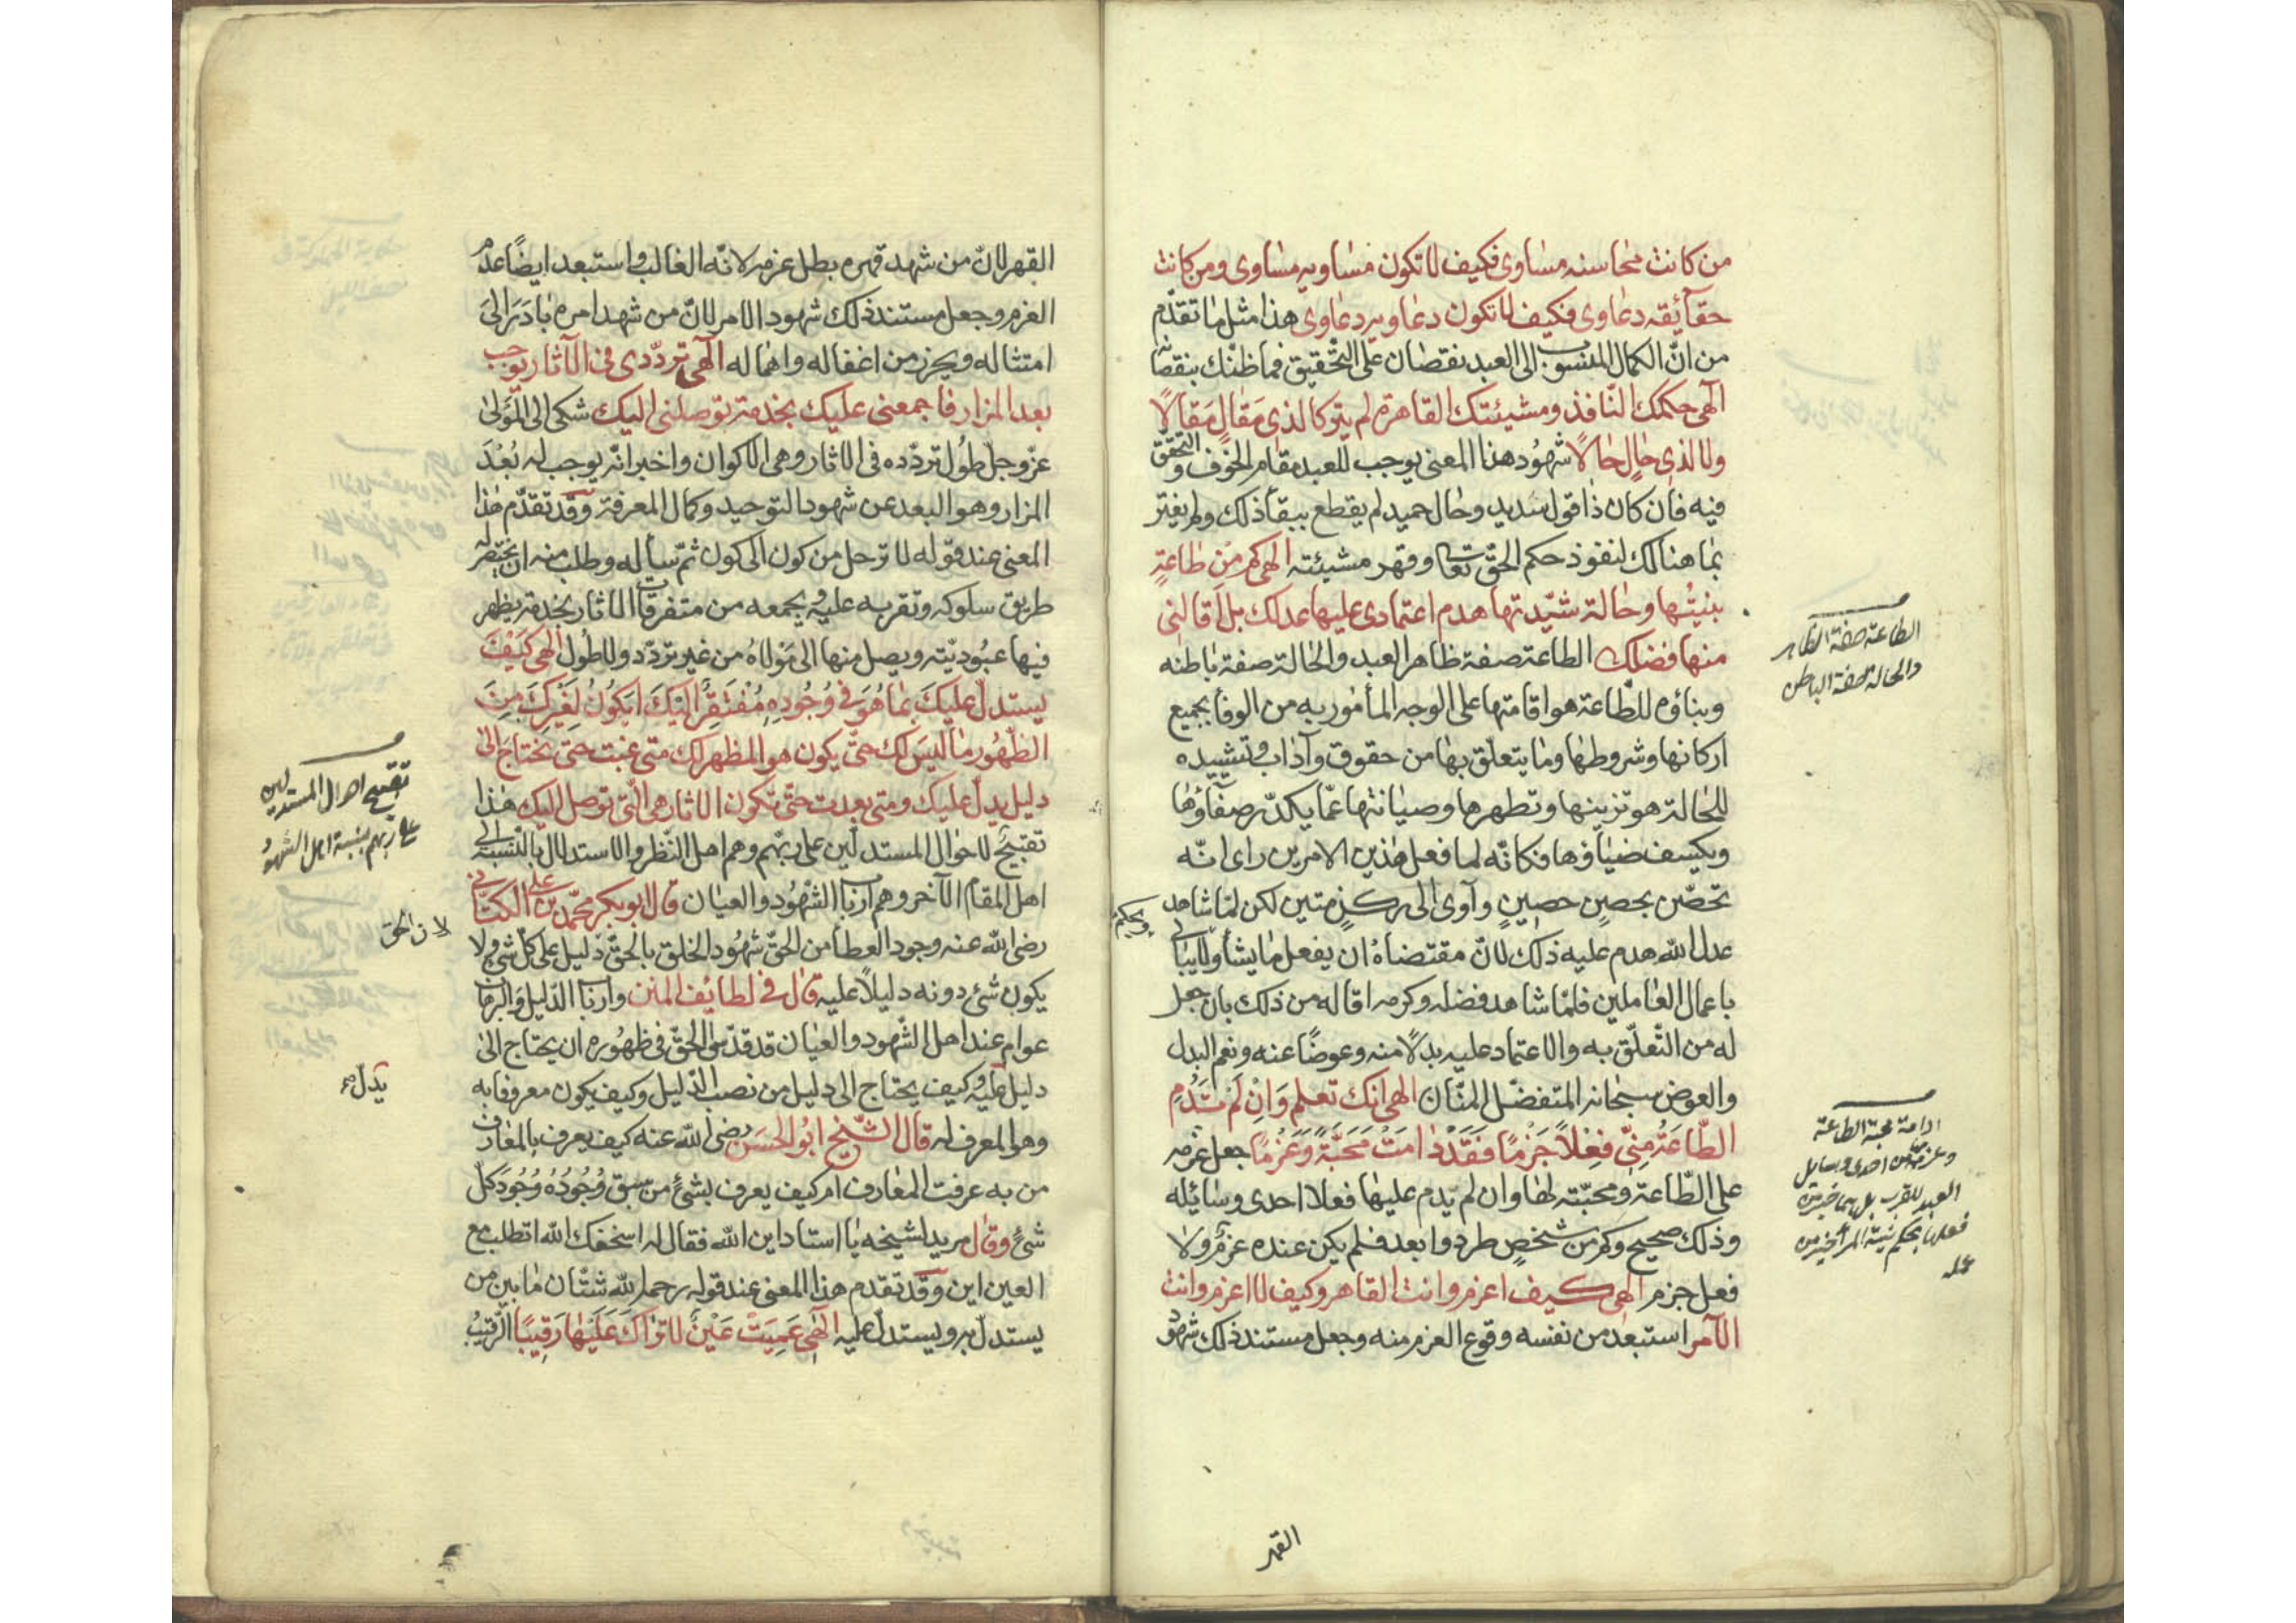 من كانت محاسنه مساوى فكيف لا تكون مساويه مساوى ومن كانت
حقآئقه دعاوى فكيف لا تكون دعاويه دعاوى هذا مثل ما تقدّم
من انّ الكمال المنسوب الى العبد نقصان على التّحقيق فما ظنّك بنقصانه
الٓهى حكمك النّافذ ومشيئتك القاهرة لم يتركا لذى مَقَالٍ مَقَالًا
ولا لذى حَالٍ حَالًا شهُود هذا المعنى يوجب للعبد مقام الخوف والتحقّق
فيه فان كان ذا قول سَديد وحال حميد لم يقطع ببقآ ذلك ولم يغتر
بما هنالك لنفوذ حكم الحقّ تعالى وقهر مشيئته الهى كم مِن طاعةٍ
بنيتُها وحالة شيّدتها هدم اعتمادى عليها عدلك بل اَقالنى
منها فضلك الطاعة صفة ظاهر العبد والحالة صفة باطنه
وبناؤه للطّاعة هو اقامتها على الوجه المأمور به من الوفآ بجميع
اركانها وشروطها وما يتعلّق بها من حقوق وآداب وتشييده
للحالة هو تزيينها وتطهرها وصيانتها عمّا يكدّر صفآؤها
ويكسف ضيآؤها فكانّه لما فعل هذين الامرين راى انّه
تحصّن بحصنٍ حصينٍ وآوى الى ركنٍ متين لكن لمّا شاهد
عدل الله هدم عليه ذلك لانّ مقتضاهُ ان يفعل ما يشآ ولا يبالى
باعمال العاملين فلمّا شاهد فضله وكرمه اقاله من ذلك بان جعل
له من التّعلّق به والاعتماد عليه بدلًا منه وعوضًا عنه ونعم البدل
والعوض سبحانه المتفضّل المنّان الهى انك تعلم وَاِنْ لَمْ تَدُمِ
الطّاعَةُ مِنِّى فِعْلًا جَزْمًا فَقَدْ دَامَتْ مَحَبَّةً وَعَزْمًا جعل عزمه
على الطّاعة ومحبّته لها وان لم يَدم عليها فعلا احدى وسَائله
وذلك صحيح وكم من شخصٍ طرد وابعد فلم يكن عنده عزمٌ ولا
فعل جزم الهى كيف اعزم وانت القاهر وكيف لا اعزم وانت
الآمر استبعد من نفسه وقوع العزم منه وجعل مستند ذلك شهود
القهر
ويحكم
الطاعة صفة الظاهر
والحالة صفة الباطن
ادامة محبة الطاعة
وعزمه من احدى وسايل
العبد للقرب بل هما خير من
فعلها بحكم نية المرأ خير من
عمله
القهر لانّ من شهد قهره بطل عزمه لانّه الغالب واستبعد ايضًا عدم
العزم وجعل مستند ذلك شهود الامر لانّ من شهد امره بَادَرَ الىَ
امتثاله ويحزز من اغفاله واهماله الٓهى تردّدى فى الآثار يوجب
بعد المزار فاجمعنى عليك بخدمة توصلنى اليك شكى الى المَوْلىٰ
عزّ وجلّ طُول تردّده فى الاثار وهى الاكوان واخبر انّه يوجب له بُعْدَ
المزار وهو البعد عن شهود التوحيد وكمال المعرفة وقد تقدّم هٰذا
المعنى عند قوله لا ترحل من كون الى كون ثمّ سأله وطلب منه ان يختصر له
طريق سلوكه وتقربه عليهِ ويجمعه من متفرقات الاثار بخدمة يظهر
فيها عبُوديّته ويصل منها الى مَوْلاهُ من غير تردّد ولا طُول الٰهى كَيْفَ
يستدلّ عليكَ بِمَا هُوَ فى وُجُودِهِ مُفْتَقِرٌ اليْكَ ايَكُونُ لِغَيْرِكَ مِنَ
الظّهُور مَا ليْسَ لك حَتّى يكون هو المظهر لك متى غبت حتى تحتاجَ الىٰ
دليل يدلّ عليك ومتى بعدت حتّى تكون الاثار هى الّتى توصل اليك هٰذا
تقبيحٌ لاحوال المستدلّين على ربّهم وهم اهل النّظر والاستدلال بالنّسبة الى
اهل المقام الآخر وهم ارباب الشّهُود والعيان قال ابو بكر محمّد بن على الكتانى
رضى الله عنه وجود العطآ من الحقّ شهُود الخلق بالحقّ دليل على كلّ شىٍ ولا
يكون شئ دونه دليلًا عليه قال فى لطائف المنن وارباب الدّليل والبرهان
عوام عند اهل الشّهود والعيان قد قدّسوا الحقّ فى ظهُوره ان يحتاج الىٰ
دليل عليه وكيف يحتاج الى دليل من نصب الدّليل وكيف يكون معروفا به
وهو المعرف له قال الشّيخ ابوُ الحَسَن رضى الله عنه كيف يعرف بالمعارف
من به عرفت المعارف ام كيف يعرف بشىٍٔ من سبق وُجُودُهُ وُجُودَ كلّ
شئٍ وقال مريد لشيخه يا استاد اين الله فقال له اسخفك الله اتطلب مع
العين اين وقد تقدم هذا المعنى عند قوله رحمه الله شتّان مٰا بين من
يستدلّ به ويستدلّ عليه الٓهى عَمِيَتْ عَيْنٌ لا تَرَاكَ عَلَيْهَا رَقِيبًا الرّقيبُ
تقبيح احوال المستدلين
على ربهم بنسبة اهل الشهود
لان الحق
يدلّ